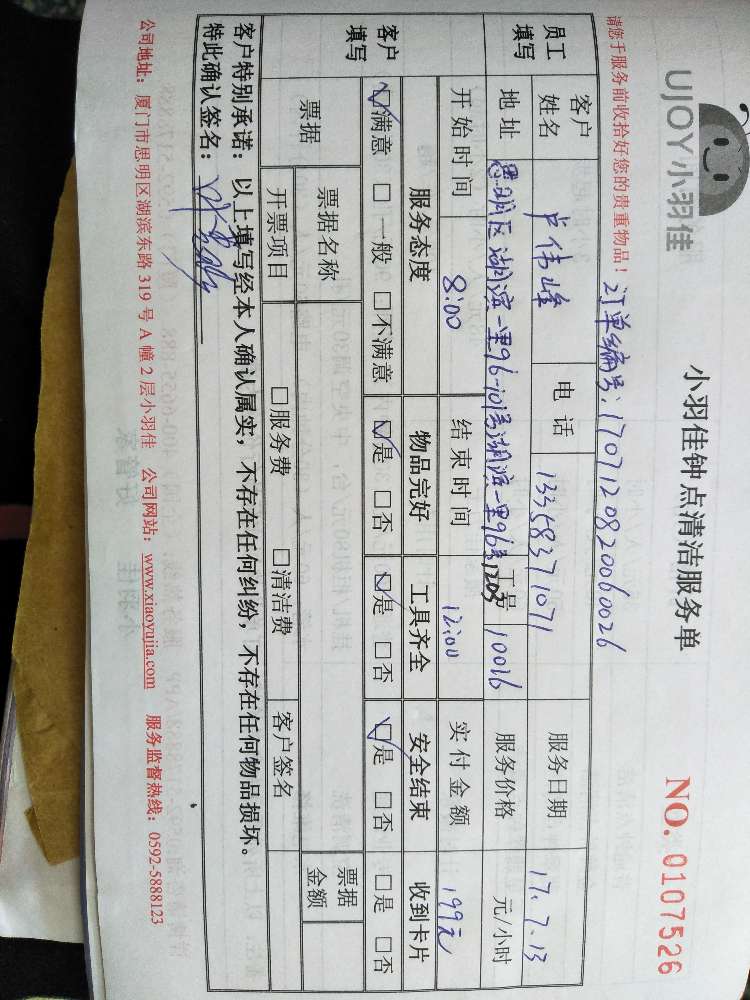 UJOY小羽佳
小羽佳钟点清洁服务单
NO. 0107526
请您于服务前收拾好您的贵重物品!
订单编号:1707120820060026
员工填写
客户姓名 卢伟峰 电话 13358371071 服务日期 17.7.13
地址 思明区湖滨一里96-101号湖滨一里96号1205 工号 10016 服务价格 元/小时
开始时间 8:00 结束时间 12:00 实付金额 199元
客户填写
服务态度 物品完好 工具齐全 安全结束 收到卡片
☑满意 □一般 □不满意 ☑是 □否 ☑是 □否 ☑是 □否 □是 □否
票据 票据名称 票据金额
开票项目 □服务费 □清洁费 客户签名
客户特别承诺:以上填写经本人确认属实,不存在任何纠纷,不存在任何物品损坏。
特此确认签名:
公司地址:厦门市思明区湖滨东路 319 号 A 幢 2 层小羽佳 公司网站:www.xiaoyujia.com 服务监督热线:0592-5888123